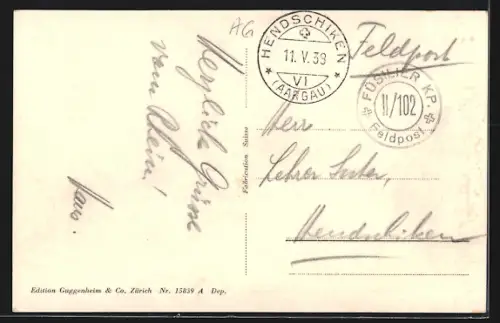 AG
HENDSCHIKEN
11. V. 39
VI
(AARGAU)
Feldpost
FÜSILIER KP.
II/102
Feldpost
Herzliche Grüsse
vom Rhein!
Hans.
Fabrication Suisse
Herr
Lehrer Suter,
Hendschiken
Edition Guggenheim & Co. Zürich Nr. 15839 A Dep.